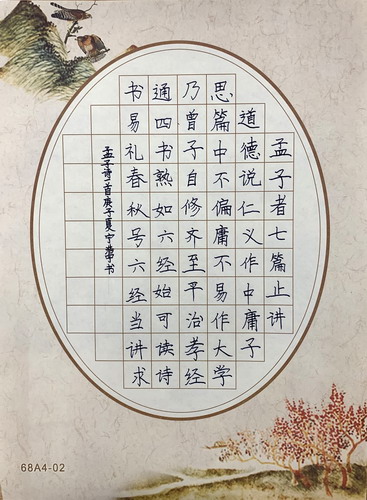 孟子者七篇止讲
道德说仁义作中庸子
思篇中不偏庸不易作大学
乃曾子自修齐至平治孝经
通四书熟如六经始可读诗
书易礼春秋号六经当讲求
孟子诗一首庚子夏宁书
68A4-02